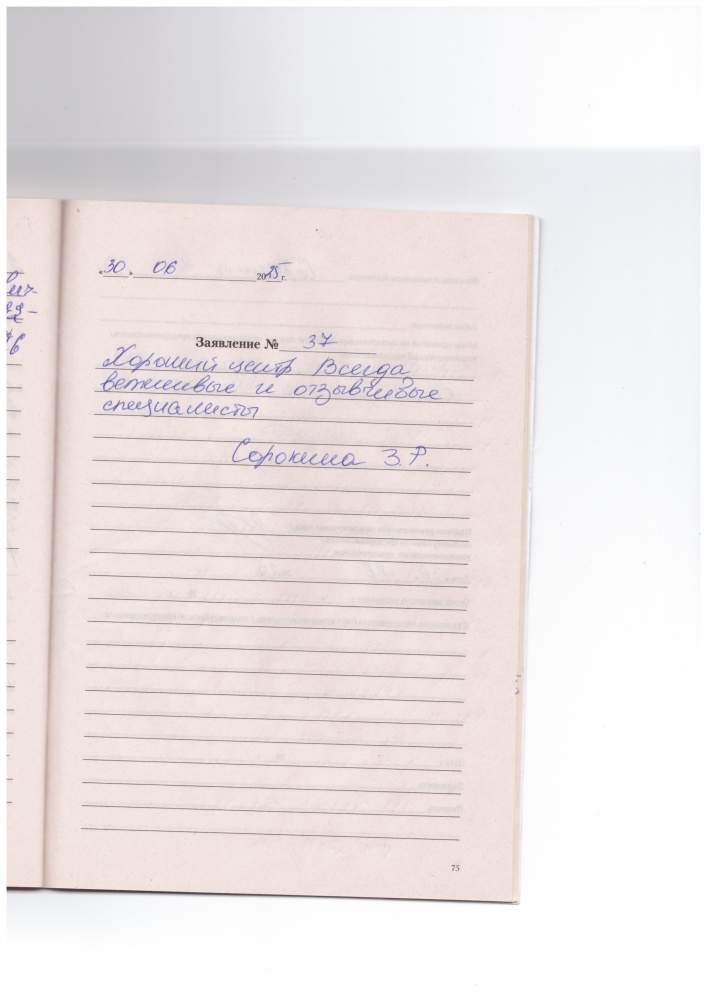 «30» 06 2025 г.
Заявление № 37
Хороший центр Всегда
вежливые и отзывчивые
специалисты
Сорокина З.Р.
75